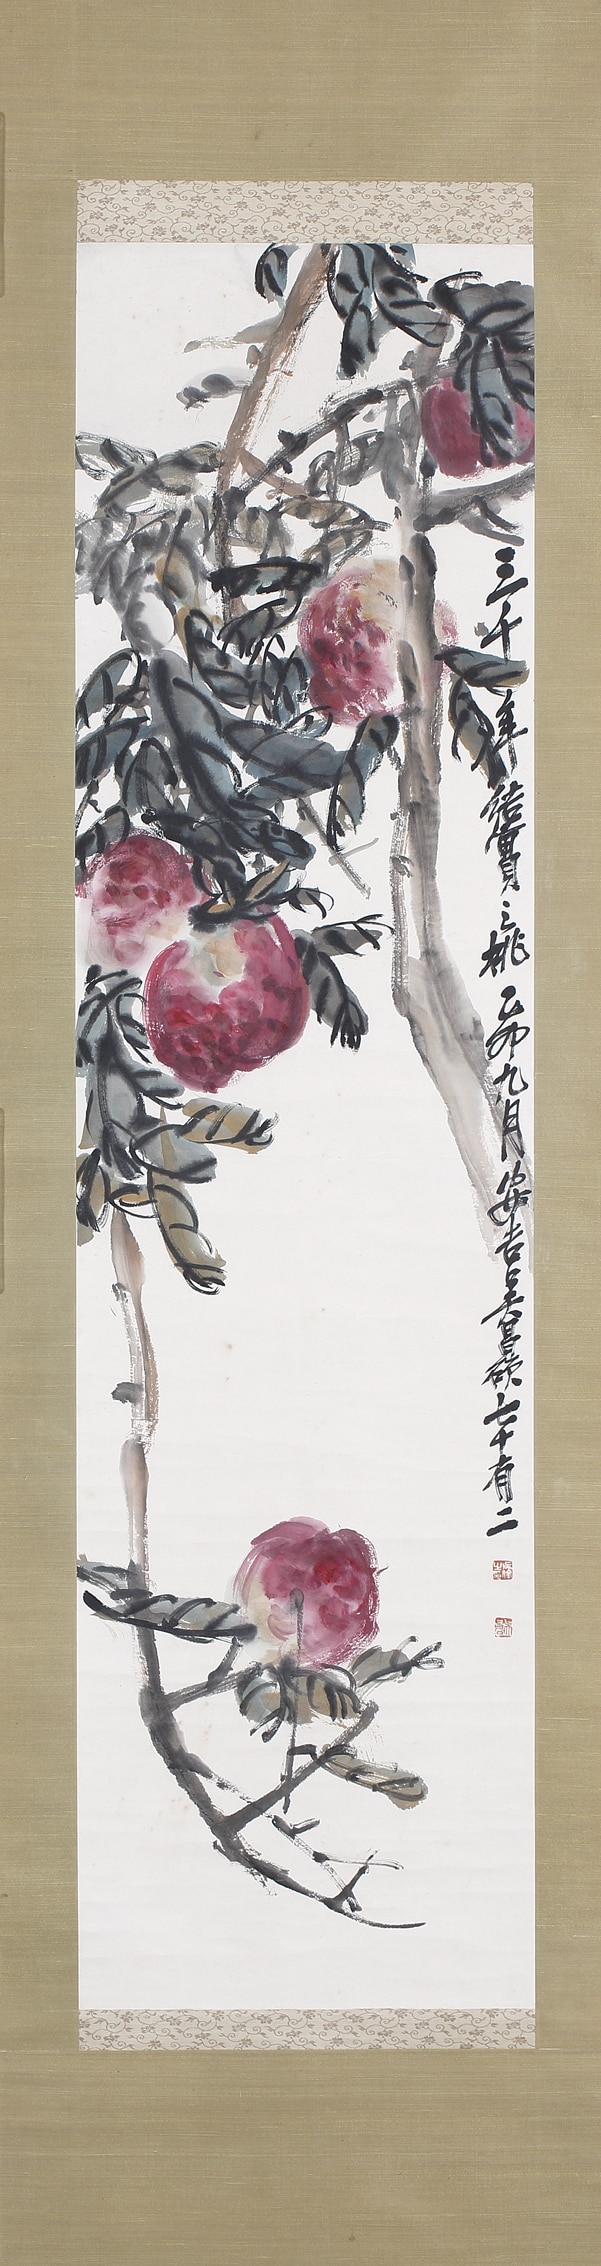 三千年結實之桃乙卯九月安吉吳昌碩七十有二